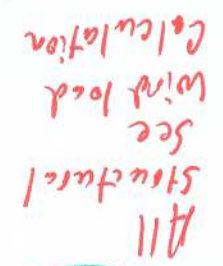 All
Structural
See
Wind load
Calculation